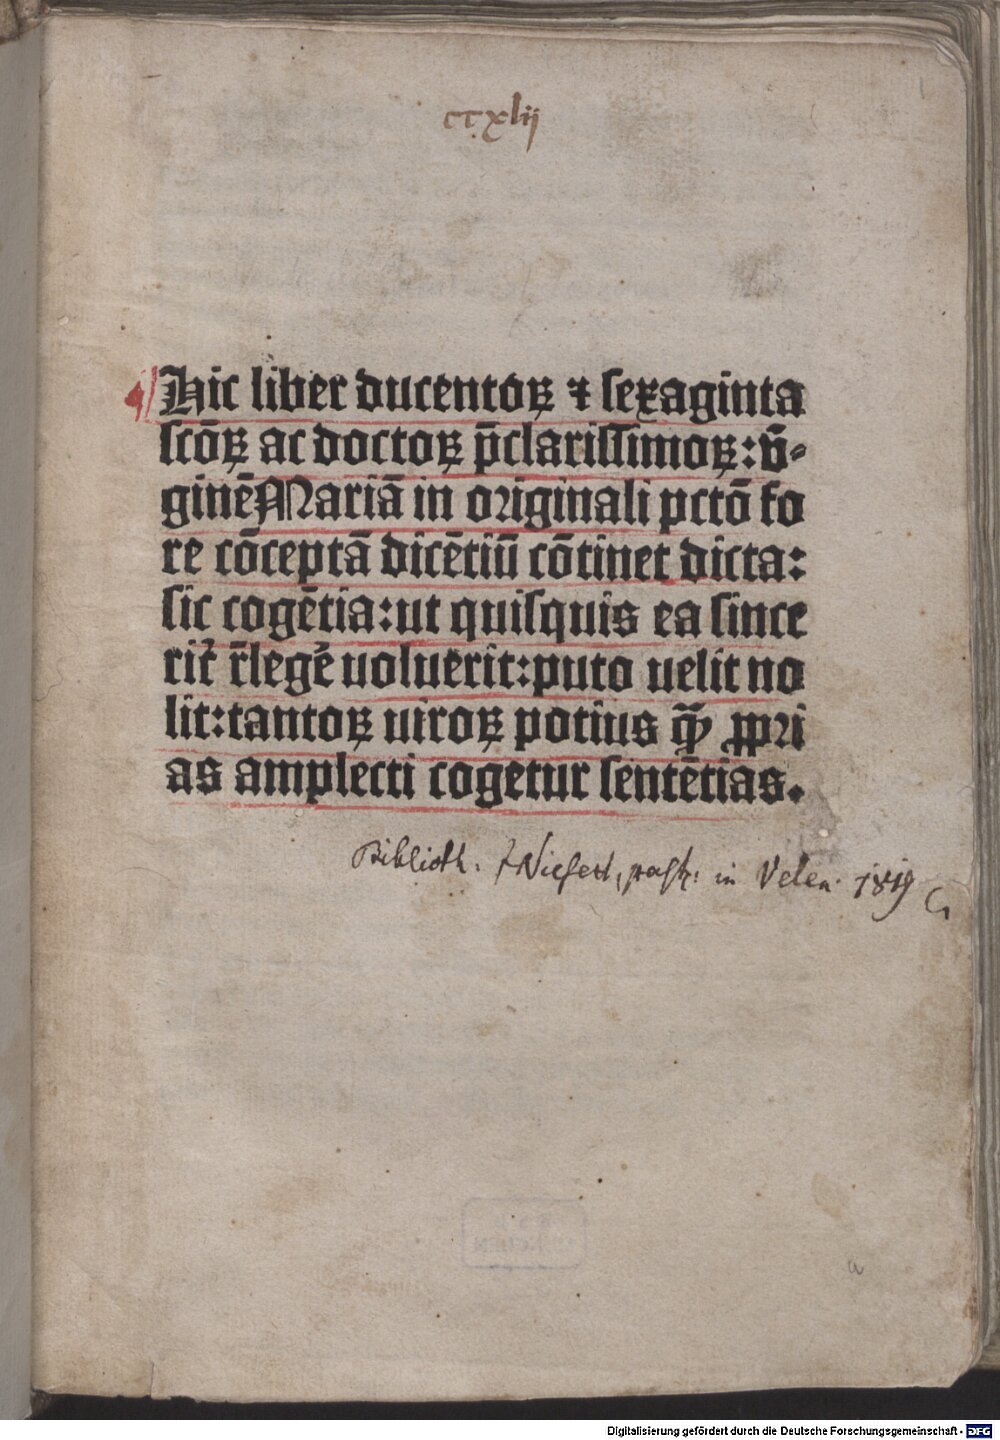 cc.xlii
Hic liber ducentoꝝ ⁊ sexaginta
scōꝝ ac doctoꝝ p̄clarissimoꝝ: v̄-
ginē Mariā in originali pctō fo
re cōceptā dicētiū cōtinet dicta:
sic cogētia: ut quisquis ea since
rit᷑ r̄legē uoluerit: puto uelit no
lit: tantoꝝ uiroꝝ potius q̄ꝫ ꝓpri
as amplecti cogetur sentētias.
Biblioth: Niesert, past: in Velen. 1819
a
Digitalisierung gefördert durch die Deutsche Forschungsgemeinschaft - DFG